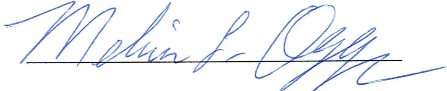 Melvin L. Ogg